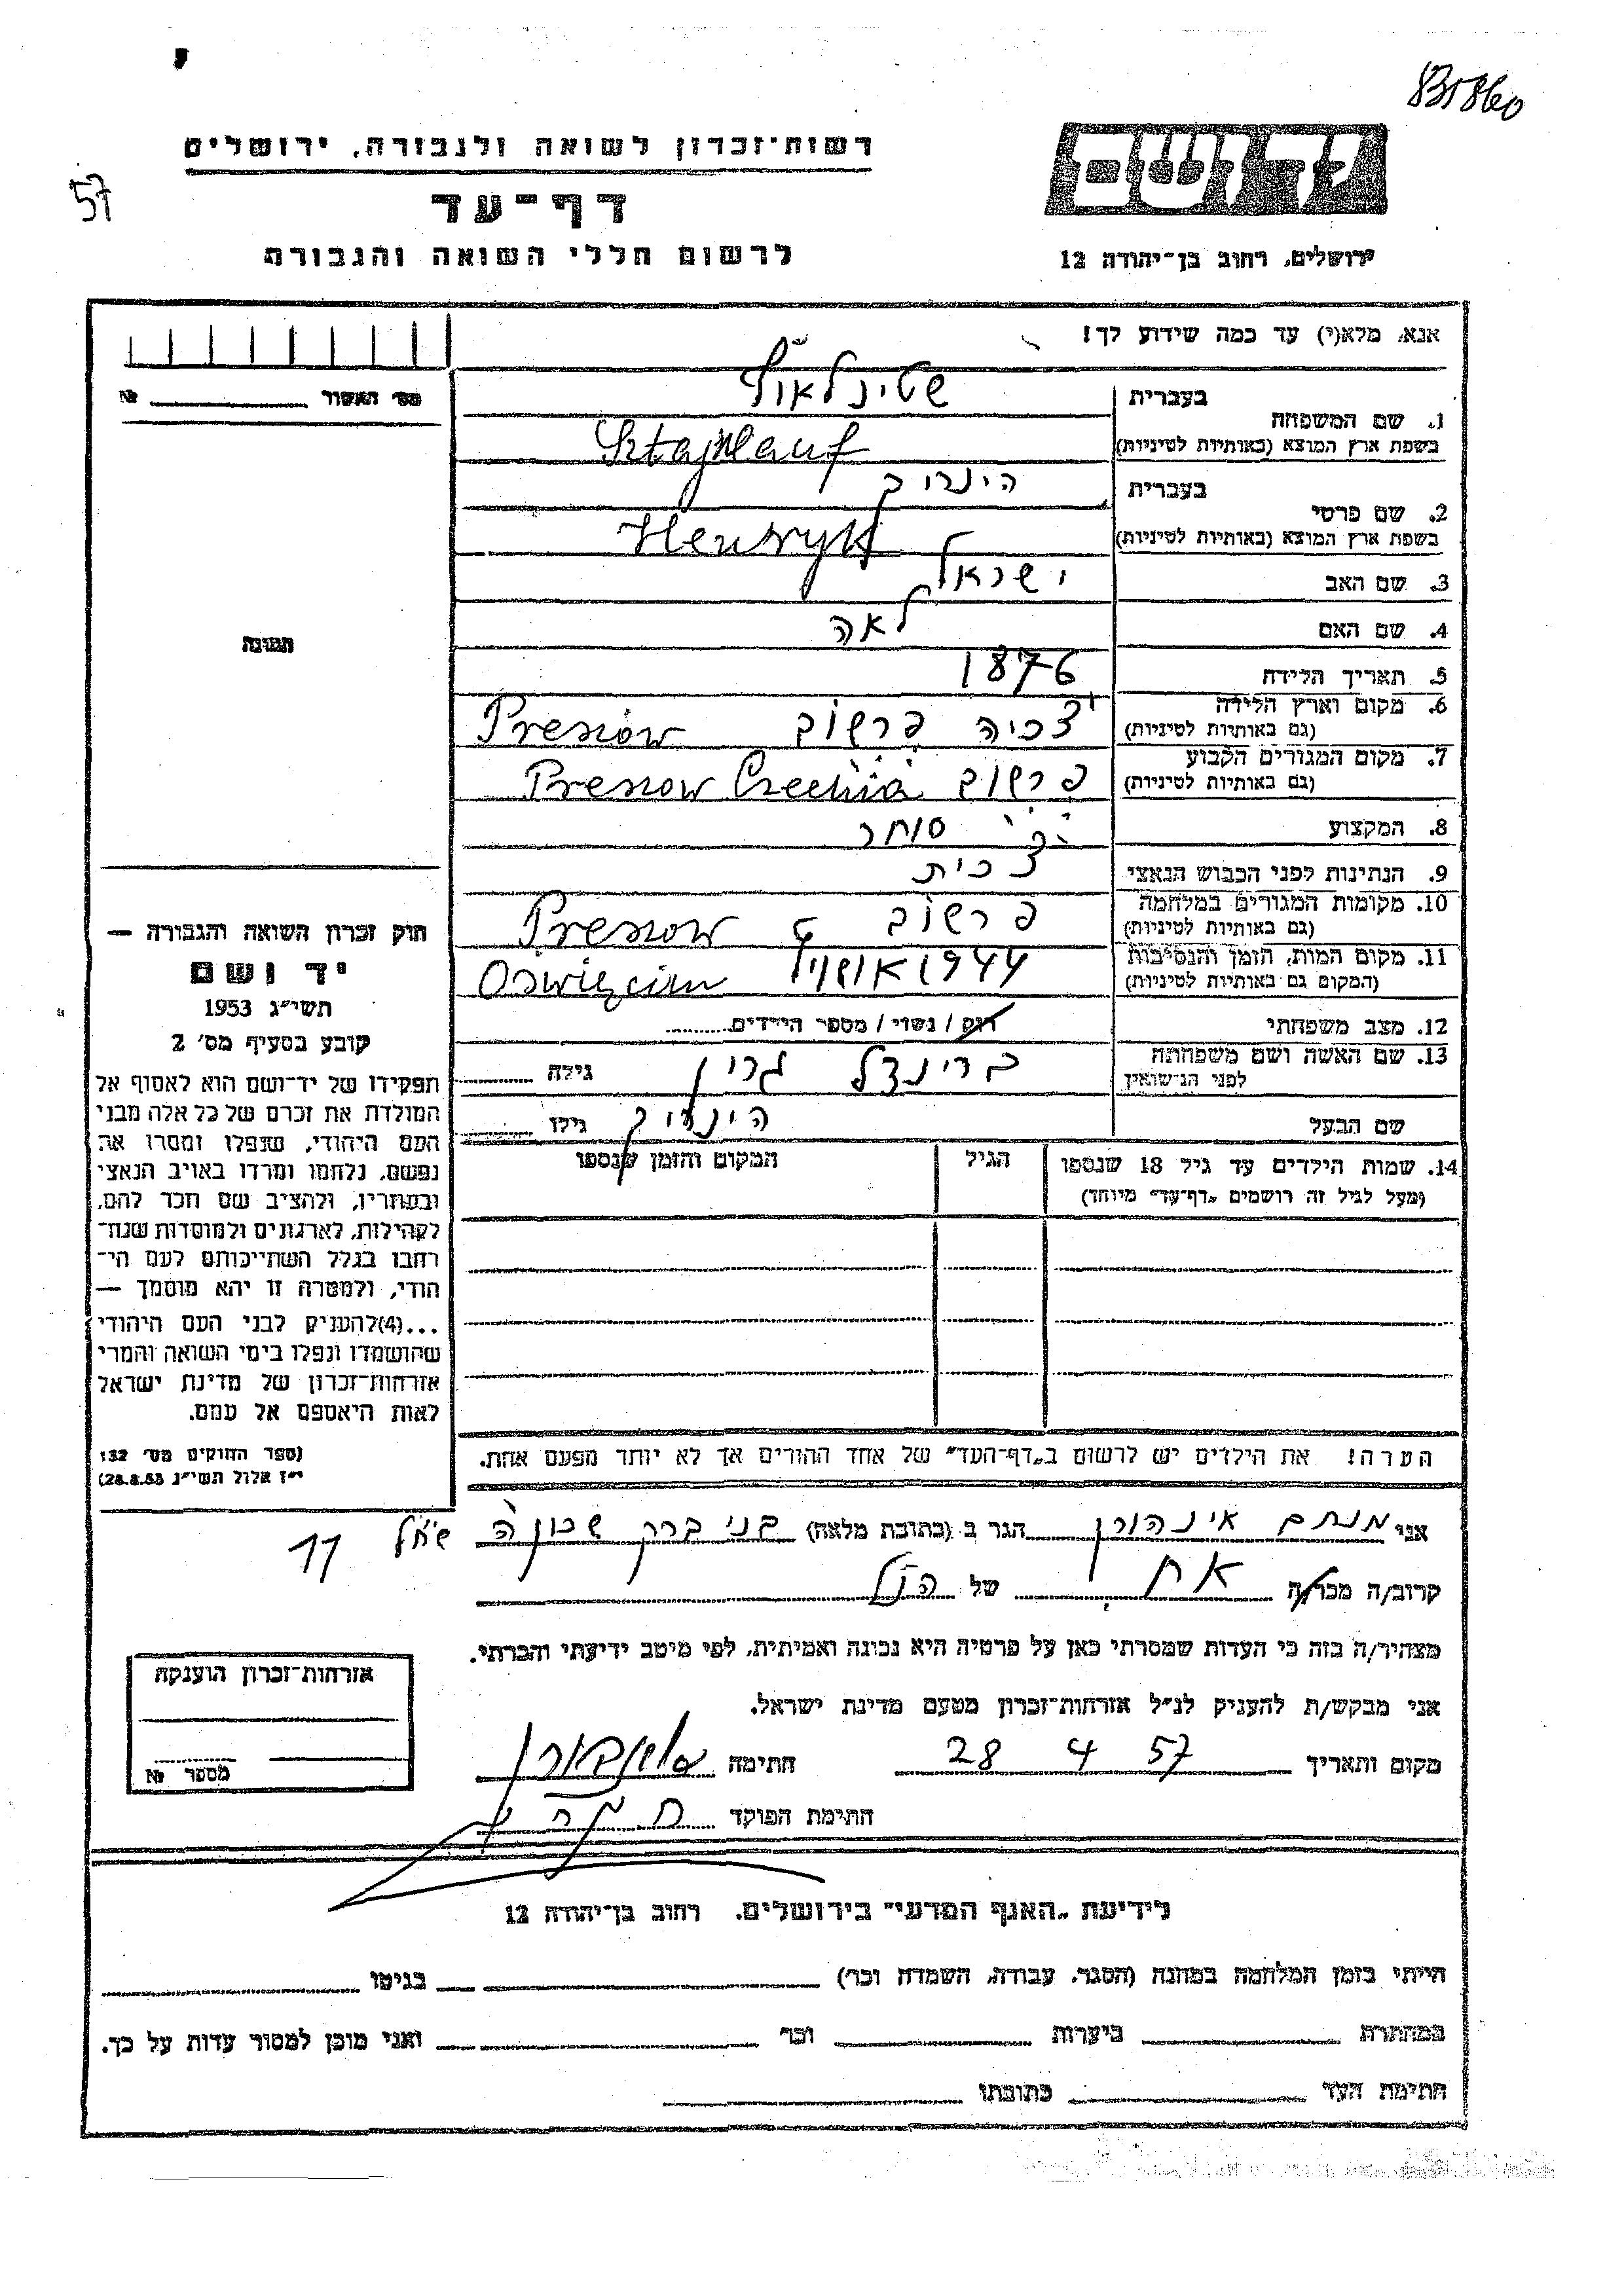 831860
רשות-זכרון לשואה ולגבורה, ירושלים
57
דף-עד
לרשום חללי השואה והגבורה
יד ושם
ירושלים, רחוב בן-יהודה 12
אנא, מלא(י) עד כמה שידוע לך!
מס' האשור № ______
1. שם המשפחה בעברית שטינלאוף
בשפת ארץ המוצא (באותיות לטיניות) Sztajnlauf
2. שם פרטי בעברית הינריך
בשפת ארץ המוצא (באותיות לטיניות) Henryk
3. שם האב ישראל
4. שם האם לאה
תמונה
5. תאריך הלידה 1876
6. מקום וארץ הלידה (גם באותיות לטיניות) צכיה פרשוב Presiow
7. מקום המגורים הקבוע (גם באותיות לטיניות) פרשוב Pressow Czechia
8. המקצוע סוחר
9. הנתינות לפני הכבוש הנאצי צכית
10. מקומות המגורים במלחמה (גם באותיות לטיניות) פרשוב Pressow
11. מקום המות, הזמן והנסיבות (המקום גם באותיות לטיניות) 1944 Oswięcim
12. מצב משפחתי רווק / נשוי / מספר הילדים
13. שם האשה ושם משפחתה לפני הנישואין בריינדל גרין גילה
שם הבעל הינריך גילו
14. שמות הילדים עד גיל 18 שנספו הגיל המקום והזמן שנספו
(מעל לגיל זה רושמים „דף-עד" מיוחד)
חוק זכרון השואה והגבורה —
יד ושם
תשי"ג 1953
קובע בסעיף מס' 2
תפקידו של יד-ושם הוא לאסוף אל
המולדת את זכרם של כל אלה מבני
העם היהודי, שנפלו ומסרו את
נפשם, נלחמו ומרדו באויב הנאצי
ובעוזריו, ולהציב שם וזכר להם,
לקהילות, לארגונים ולמוסדות שנח-
רבו בגלל השתייכותם לעם הי-
הודי, ולמטרה זו יהא מוסמך —
...(4)להעניק לבני העם היהודי
שהושמדו ונפלו בימי השואה והמרי
אזרחות-זכרון של מדינת ישראל
לאות היאספם אל עמם.
(ספר החוקים מס' 132
י"ז אלול תשי"ג 28.8.53)
הערה! את הילדים יש לרשום ב„דף-העד" של אחד ההורים אך לא יותר מפעם אחת.
אני מנחם איינהורן הגר ב (כתובת מלאה) בני ברק שכונה 11
קרוב/ה מכר/ה אח של הנ"ל
מצהיר/ה בזה כי העדות שמסרתי כאן על פרטיה היא נכונה ואמיתית, לפי מיטב ידיעתי והכרתי.
אני מבקש/ת להעניק לנ"ל אזרחות-זכרון מטעם מדינת ישראל.
מקום ותאריך 28 4 57 חתימה
חתימת הפוקד
אזרחות-זכרון הוענקה
מספר №
לידיעת „האגף המדעי" בירושלים, רחוב בן-יהודה 12
הייתי בזמן המלחמה במחנה (הסגר, עבודה, השמדה וכו') ______ בגיטו ______
במחתרת ______ ביערות ______ וכו' ______ ואני מוכן למסור עדות על כך.
חתימת העד ______ כתובתו ______